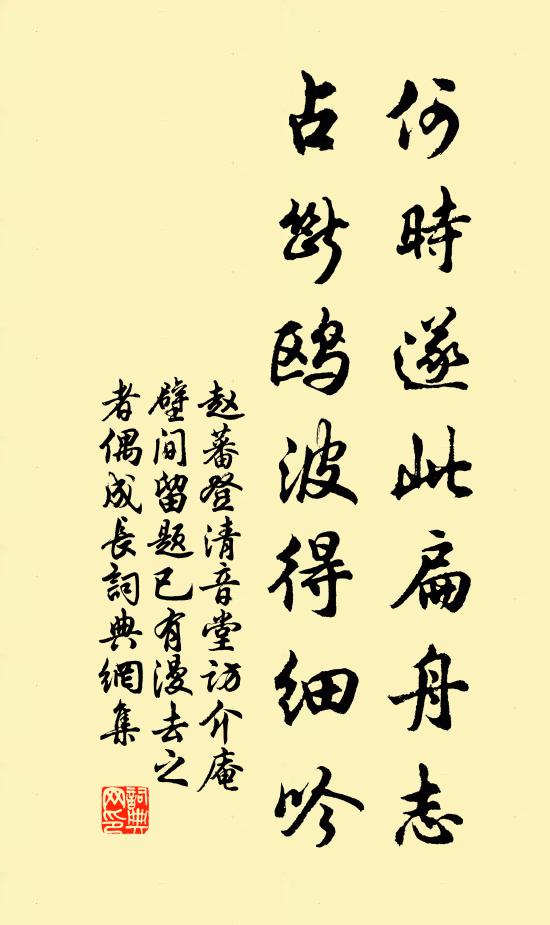 何時遂此扁舟志
占斷鷗波得細吟
赵蕃登清音堂访介庵
壁间留题已有漫去之
者偶成長詞典網集
詞典
网印